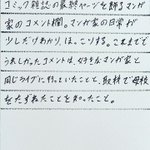 コミック雑誌の最終ページを飾るマンガ
家のコメント欄。マンガ家の日常が
少しだけわかり、ほっこりする。これまでで
うれしかったコメントは、好きなマンガ家と
同じライブに行っていたことと、取材で母校
をたずねたことを知ったこと。